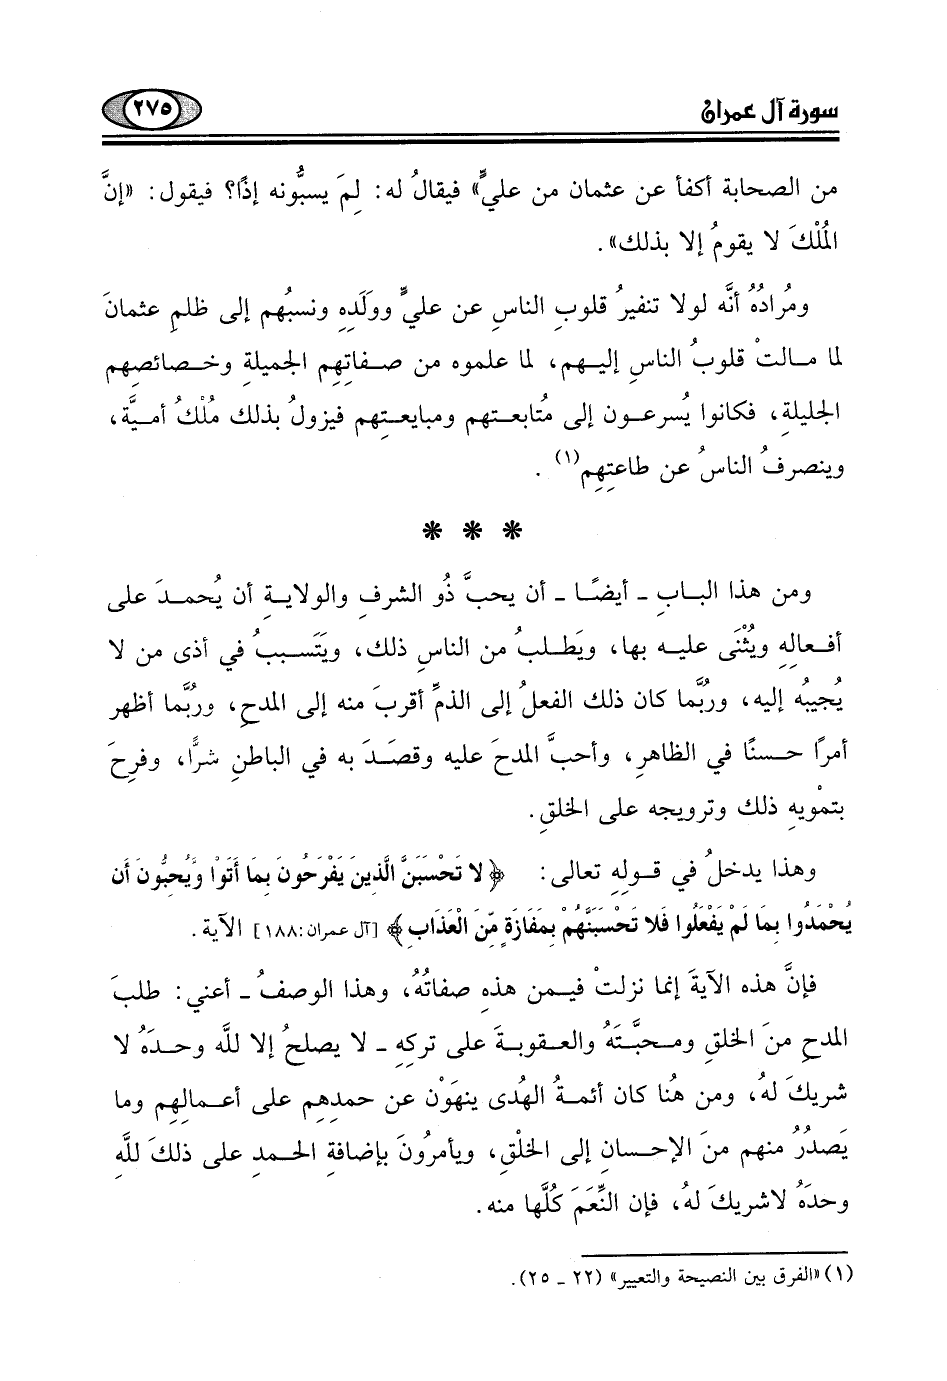 سورة آل عمران ٢٧٥
من الصحابة أكفأ عن عثمان من عليٍّ» فيقالُ له: لِمَ يسبُّونه إذًا؟ فيقول: «إنَّ
المُلْكَ لا يقومُ إلا بذلك».
ومُرادُهُ أنَّه لولا تنفيرُ قلوبِ الناسِ عن عليٍّ ووَلَدِهِ ونسبُهم إلى ظلمِ عثمانَ
لما مالتْ قلوبُ الناسِ إليهم، لما علموه من صفاتِهم الجميلةِ وخصائصِهم
الجليلةِ، فكانوا يُسرعون إلى مُتابعتهم ومبايعتِهم فيزولُ بذلك مُلْكُ أميَّة،
وينصرفُ الناسُ عن طاعتِهِم(١).
* * *
ومن هذا البابِ ـ أيضًا ـ أن يحبَّ ذُو الشرفِ والولايةِ أن يُحمدَ على
أفعالِهِ ويُثْنَى عليه بها، ويَطلبُ من الناسِ ذلك، ويَتَسببُ في أذى من لا
يُجيبُه إليه، ورُبَّما كان ذلك الفعلُ إلى الذمِّ أقربَ منه إلى المدحِ، ورُبَّما أظهر
أمرًا حسنًا في الظاهرِ، وأحبَّ المدحَ عليه وقصَدَ به في الباطنِ شرًّا، وفرِحَ
بتمْويهِ ذلك وترويجه على الخلقِ.
وهذا يدخلُ في قولِهِ تعالى: ﴿لا تَحْسَبَنَّ الَّذِينَ يَفْرَحُونَ بِمَا أَتَوْا وَّيُحِبُّونَ أَن
يُحْمَدُوا بِمَا لَمْ يَفْعَلُوا فَلا تَحْسَبَنَّهُمْ بِمَفَازَةٍ مِّنَ الْعَذَابِ﴾ [آل عمران:١٨٨] الآية.
فإنَّ هذه الآيةَ إنما نزلتْ فيمن هذهِ صفاتُهُ، وهذا الوصفُ ـ أعني: طلبَ
المدحِ منَ الخلقِ ومحبَّتَهُ والعقوبةَ على تركِهِ ـ لا يصلحُ إلا للَّهِ وحدَهُ لا
شريكَ لهُ، ومن هُنا كان أئمةُ الهُدى ينهَوْن عن حمدِهم على أعمالِهِم وما
يَصدُرُ منهم منَ الإحسانِ إلى الخلْقِ، ويأمرُونَ بإضافةِ الحمدِ على ذلكَ للَّهِ
وحدَهُ لاشريكَ لهُ، فإن النِّعَمَ كُلَّها منه.
(١) «الفرق بين النصيحة والتعيير» (٢٢ ـ ٢٥).